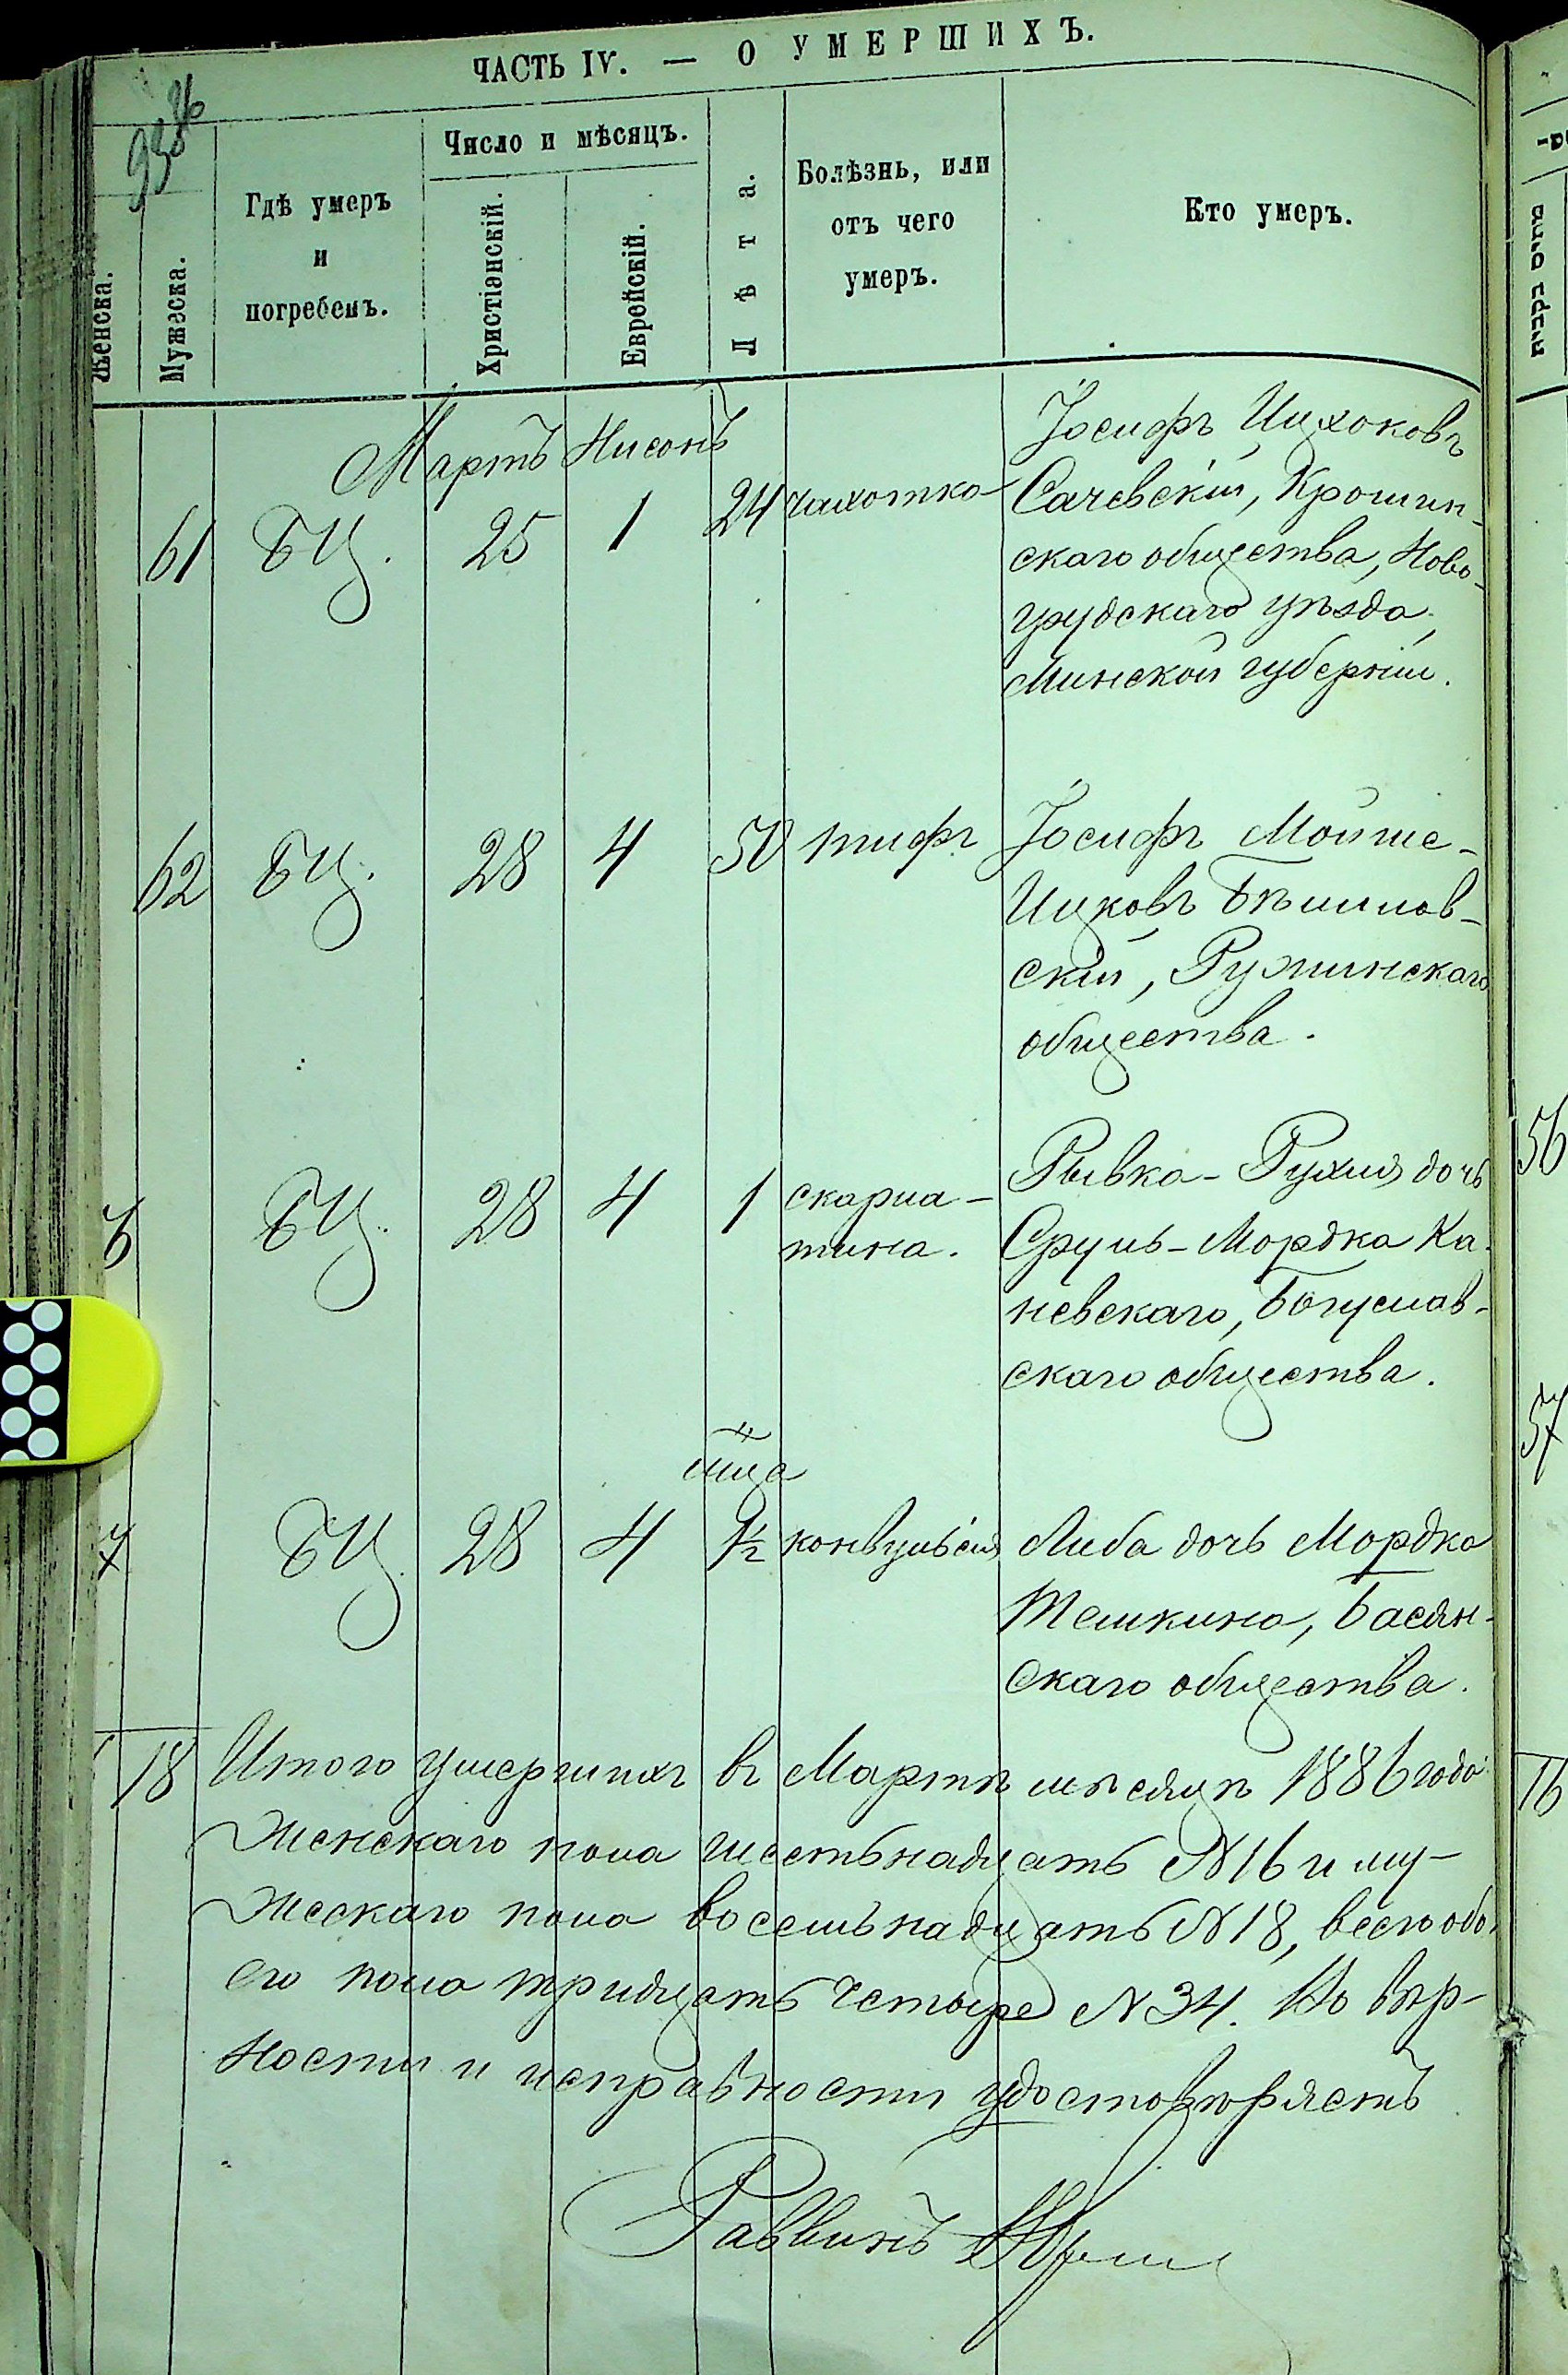 ЧАСТЬ IV. — О УМЕРШИХЪ.
Женска.
Мужеска.
Гдѣ умеръ
и
погребенъ.
Число и мѣсяцъ.
Христіанскій.
Еврейскій.
Лѣта.
Болѣзнь, или
отъ чего
умеръ.
Кто умеръ.
Мартъ Нисонъ
61 БЦ. 25 1 24 чахотка
Іосифъ Ицхоковъ
Сачевскій, Крошин-
скаго общества, Ново-
грудскаго уѣзда,
Минской губерніи.
62 БЦ. 28 4 50 тифъ
Іосифъ Мойше-
Ицковъ Бѣлилов-
скій, Ружинскаго
общества.
6 БЦ. 28 4 1 скарла-
тина.
Рывка-Рухля дочь
Сруль-Мордка Ка-
невскаго, Богуслав-
скаго общества.
м-ца
7 БЦ. 28 4 1/2 конвульсія
Либа дочь Мордка
Темкина, Басян-
скаго общества.
18 Итого умершихъ въ Мартѣ мѣсяцѣ 1886 года
женскаго пола шестьнадцать N 16 и му-
жескаго пола восемьнадцать N 18, всего обо-
его пола тридцать четыре N 34. Въ вѣр-
ности и исправности удостовѣряетъ
Раввинъ
56
57
16
מתים נקבות